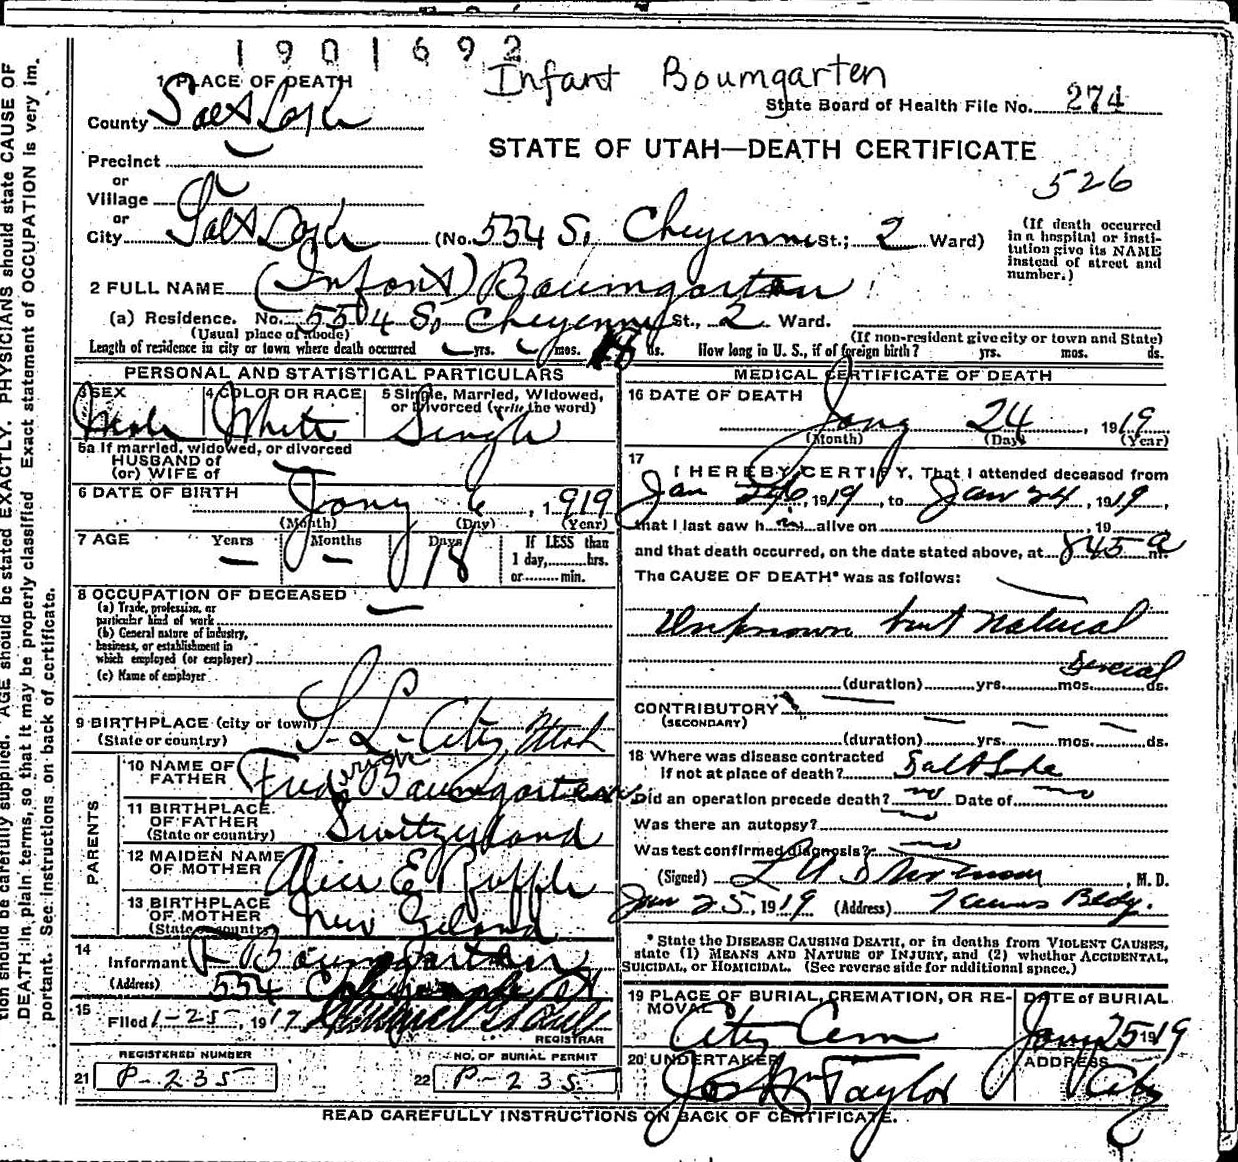 1901692
Infant Boumgarten
1 PLACE OF DEATH
State Board of Health File No. 274
County Salt Lake
STATE OF UTAH—DEATH CERTIFICATE
Precinct
526
or
Village
or
City Salt Lake (No. 554 So. Cheyenne St.; 2 Ward)
(If death occurred in a hospital or institution give its NAME instead of street and number.)
2 FULL NAME (Infant) Baumgarten
(a) Residence. No. 554 So. Cheyenne St., 2 Ward.
(Usual place of abode) (If non-resident give city or town and State)
Length of residence in city or town where death occurred yrs. mos. 18 ds. How long in U. S., if of foreign birth? yrs. mos. ds.
PERSONAL AND STATISTICAL PARTICULARS
3 SEX 4 COLOR OR RACE 5 Single, Married, Widowed, or Divorced (write the word)
Male White Single
5a If married, widowed, or divorced
HUSBAND of
(or) WIFE of
6 DATE OF BIRTH Jany 6, 1919
(Month) (Day) (Year)
7 AGE Years Months Days If LESS than
— — 18 1 day,.........hrs.
or.........min.
8 OCCUPATION OF DECEASED —
(a) Trade, profession, or
particular kind of work
(b) General nature of industry,
business, or establishment in
which employed (or employer)
(c) Name of employer
9 BIRTHPLACE (city or town) S. L. City, Utah
(State or country)
PARENTS
10 NAME OF FATHER Frederich Baumgarten
11 BIRTHPLACE OF FATHER Switzerland
(State or country)
12 MAIDEN NAME OF MOTHER Alice E Ruffle
13 BIRTHPLACE OF MOTHER New Zeland
(State or country)
14
Informant F Baumgarten
(Address) 554 St
15
Filed 1-25-, 1917
REGISTRAR
REGISTERED NUMBER NO. OF BURIAL PERMIT
21 P-235 22 P-235
MEDICAL CERTIFICATE OF DEATH
16 DATE OF DEATH
Jany 24, 1919
(Month) (Day) (Year)
17
I HEREBY CERTIFY, That I attended deceased from
Jan 24, 1919, to Jan 24, 1919,
that I last saw h im alive on , 19
and that death occurred, on the date stated above, at 845 a m.
The CAUSE OF DEATH* was as follows:
Unknown but Natural
Several
(duration) yrs. mos. ds.
CONTRIBUTORY
(SECONDARY)
(duration) yrs. mos. ds.
18 Where was disease contracted
if not at place of death? Salt Lake
Did an operation precede death? no Date of no
Was there an autopsy? no
Was test confirmed diagnosis? no
(Signed) M. D.
Jan 25, 1919 (Address) Kearns Bldg.
* State the DISEASE CAUSING DEATH, or in deaths from VIOLENT CAUSES,
state (1) MEANS AND NATURE OF INJURY, and (2) whether ACCIDENTAL,
SUICIDAL, or HOMICIDAL. (See reverse side for additional space.)
19 PLACE OF BURIAL, CREMATION, OR REMOVAL DATE of BURIAL
City Cem Jany 25 1919
20 UNDERTAKER ADDRESS
Jos Wm Taylor City
READ CAREFULLY INSTRUCTIONS ON BACK OF CERTIFICATE.
tion should be carefully supplied. AGE should be stated EXACTLY. PHYSICIANS should state CAUSE OF
DEATH in plain terms, so that it may be properly classified. Exact statement of OCCUPATION is very im-
portant. See instructions on back of certificate.